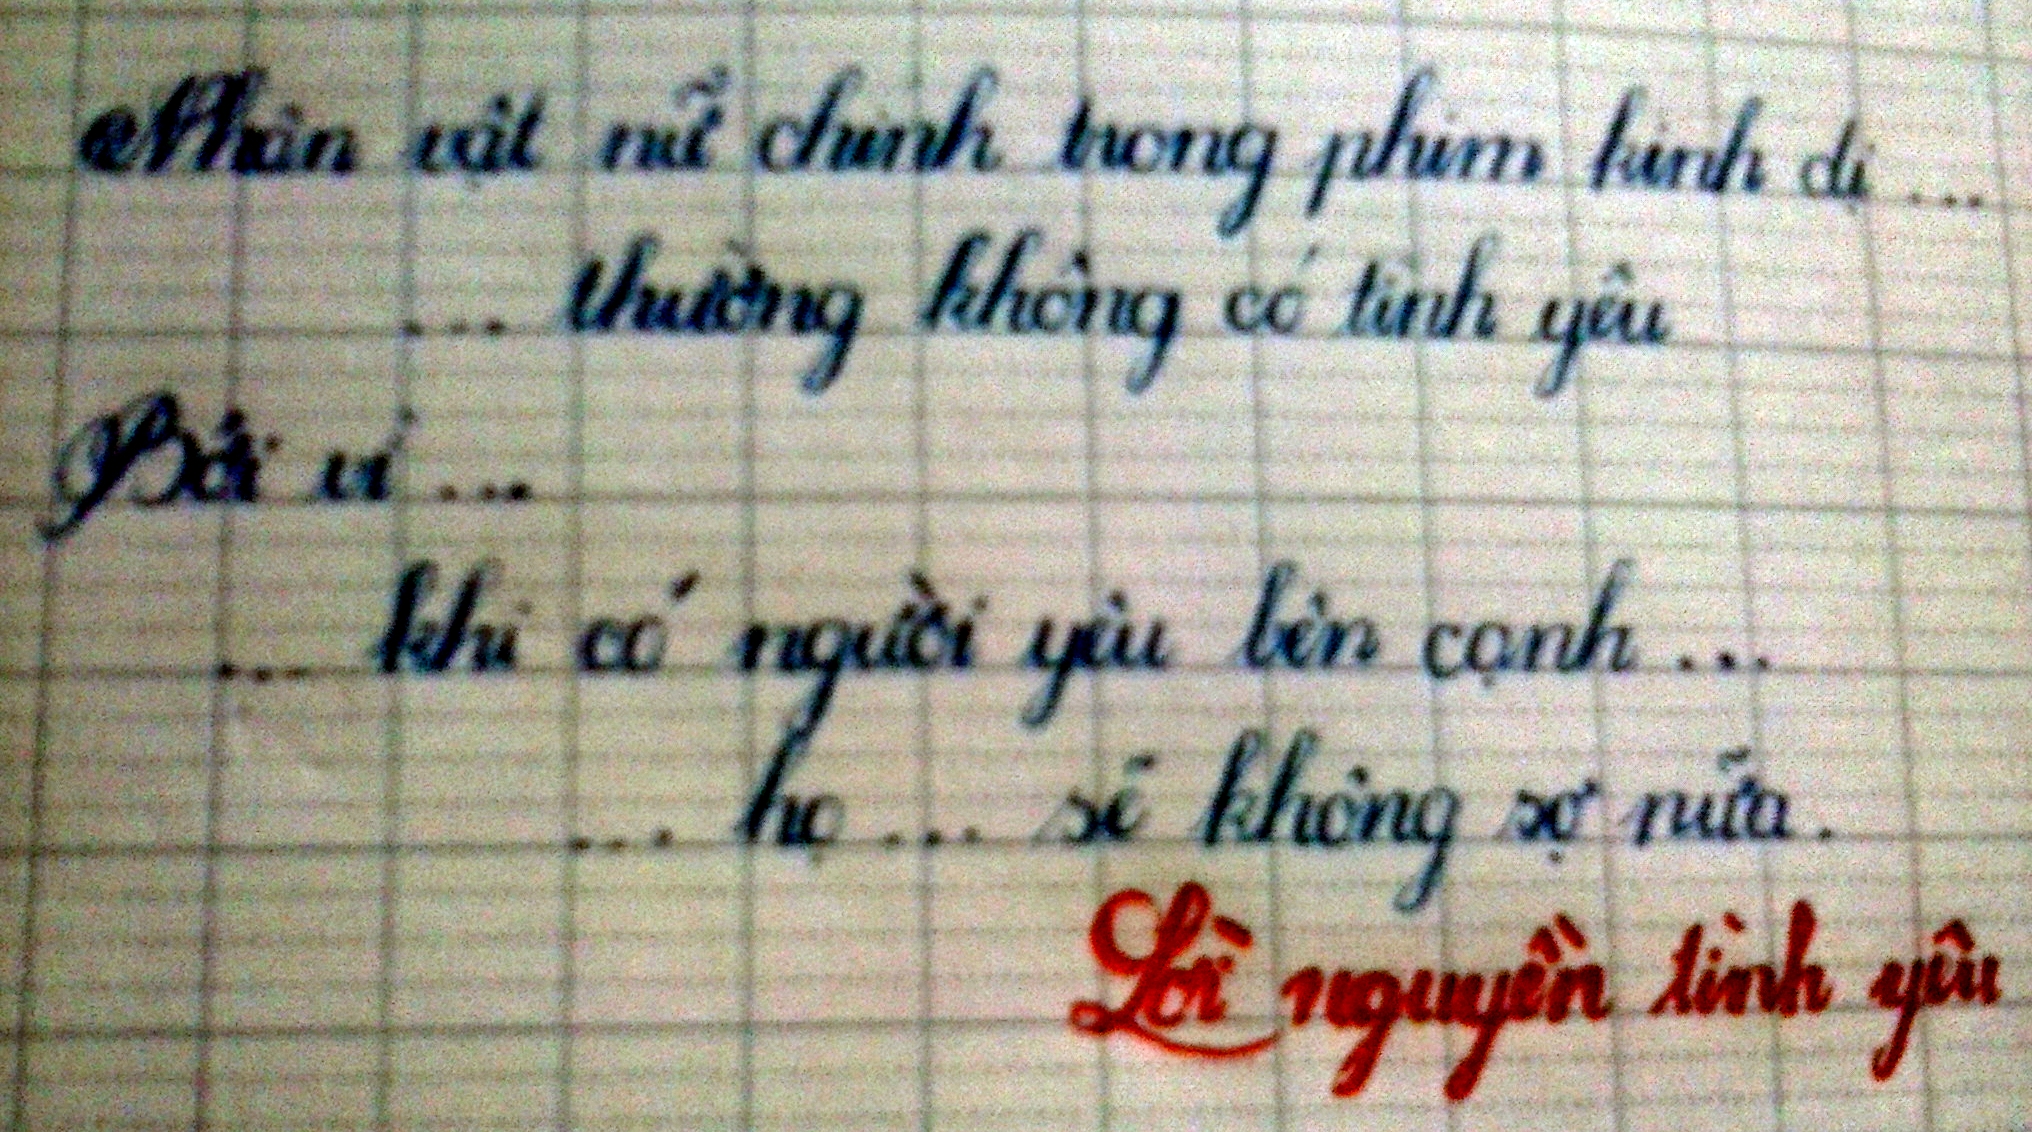 Nhân vật nữ chính trong phim kinh dị ...
... thường không có tình yêu
Bởi vì ...
... khi có người yêu bên cạnh ...
... họ ... sẽ không sợ nữa.
Lời nguyền tình yêu